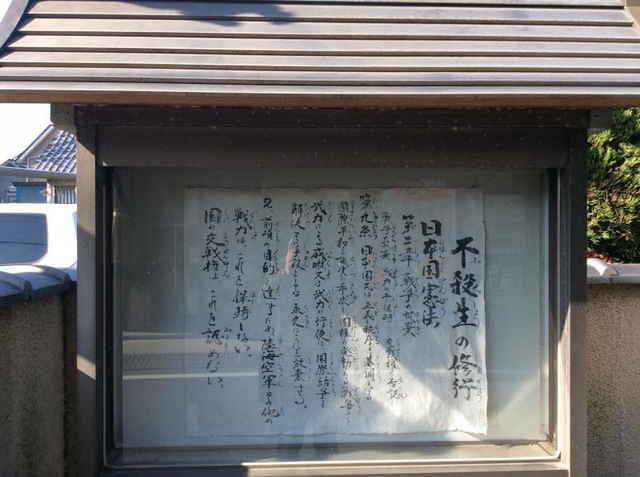 不殺生の修行
日本国憲法
第二章 戦争の放棄
戦争放棄、戦力の不保持、交戦権の否認
第九条 日本国民は、正義と秩序を基調とする
国際平和を誠実に希求し、国権の発動たる戦争と、
武力による威嚇又は武力の行使は、国際紛争を
解決する手段としては、永久にこれを放棄する。
2、前項の目的を達するため、陸海空軍その他の
戦力は、これを保持しない。
国の交戦権は、これを認めない。